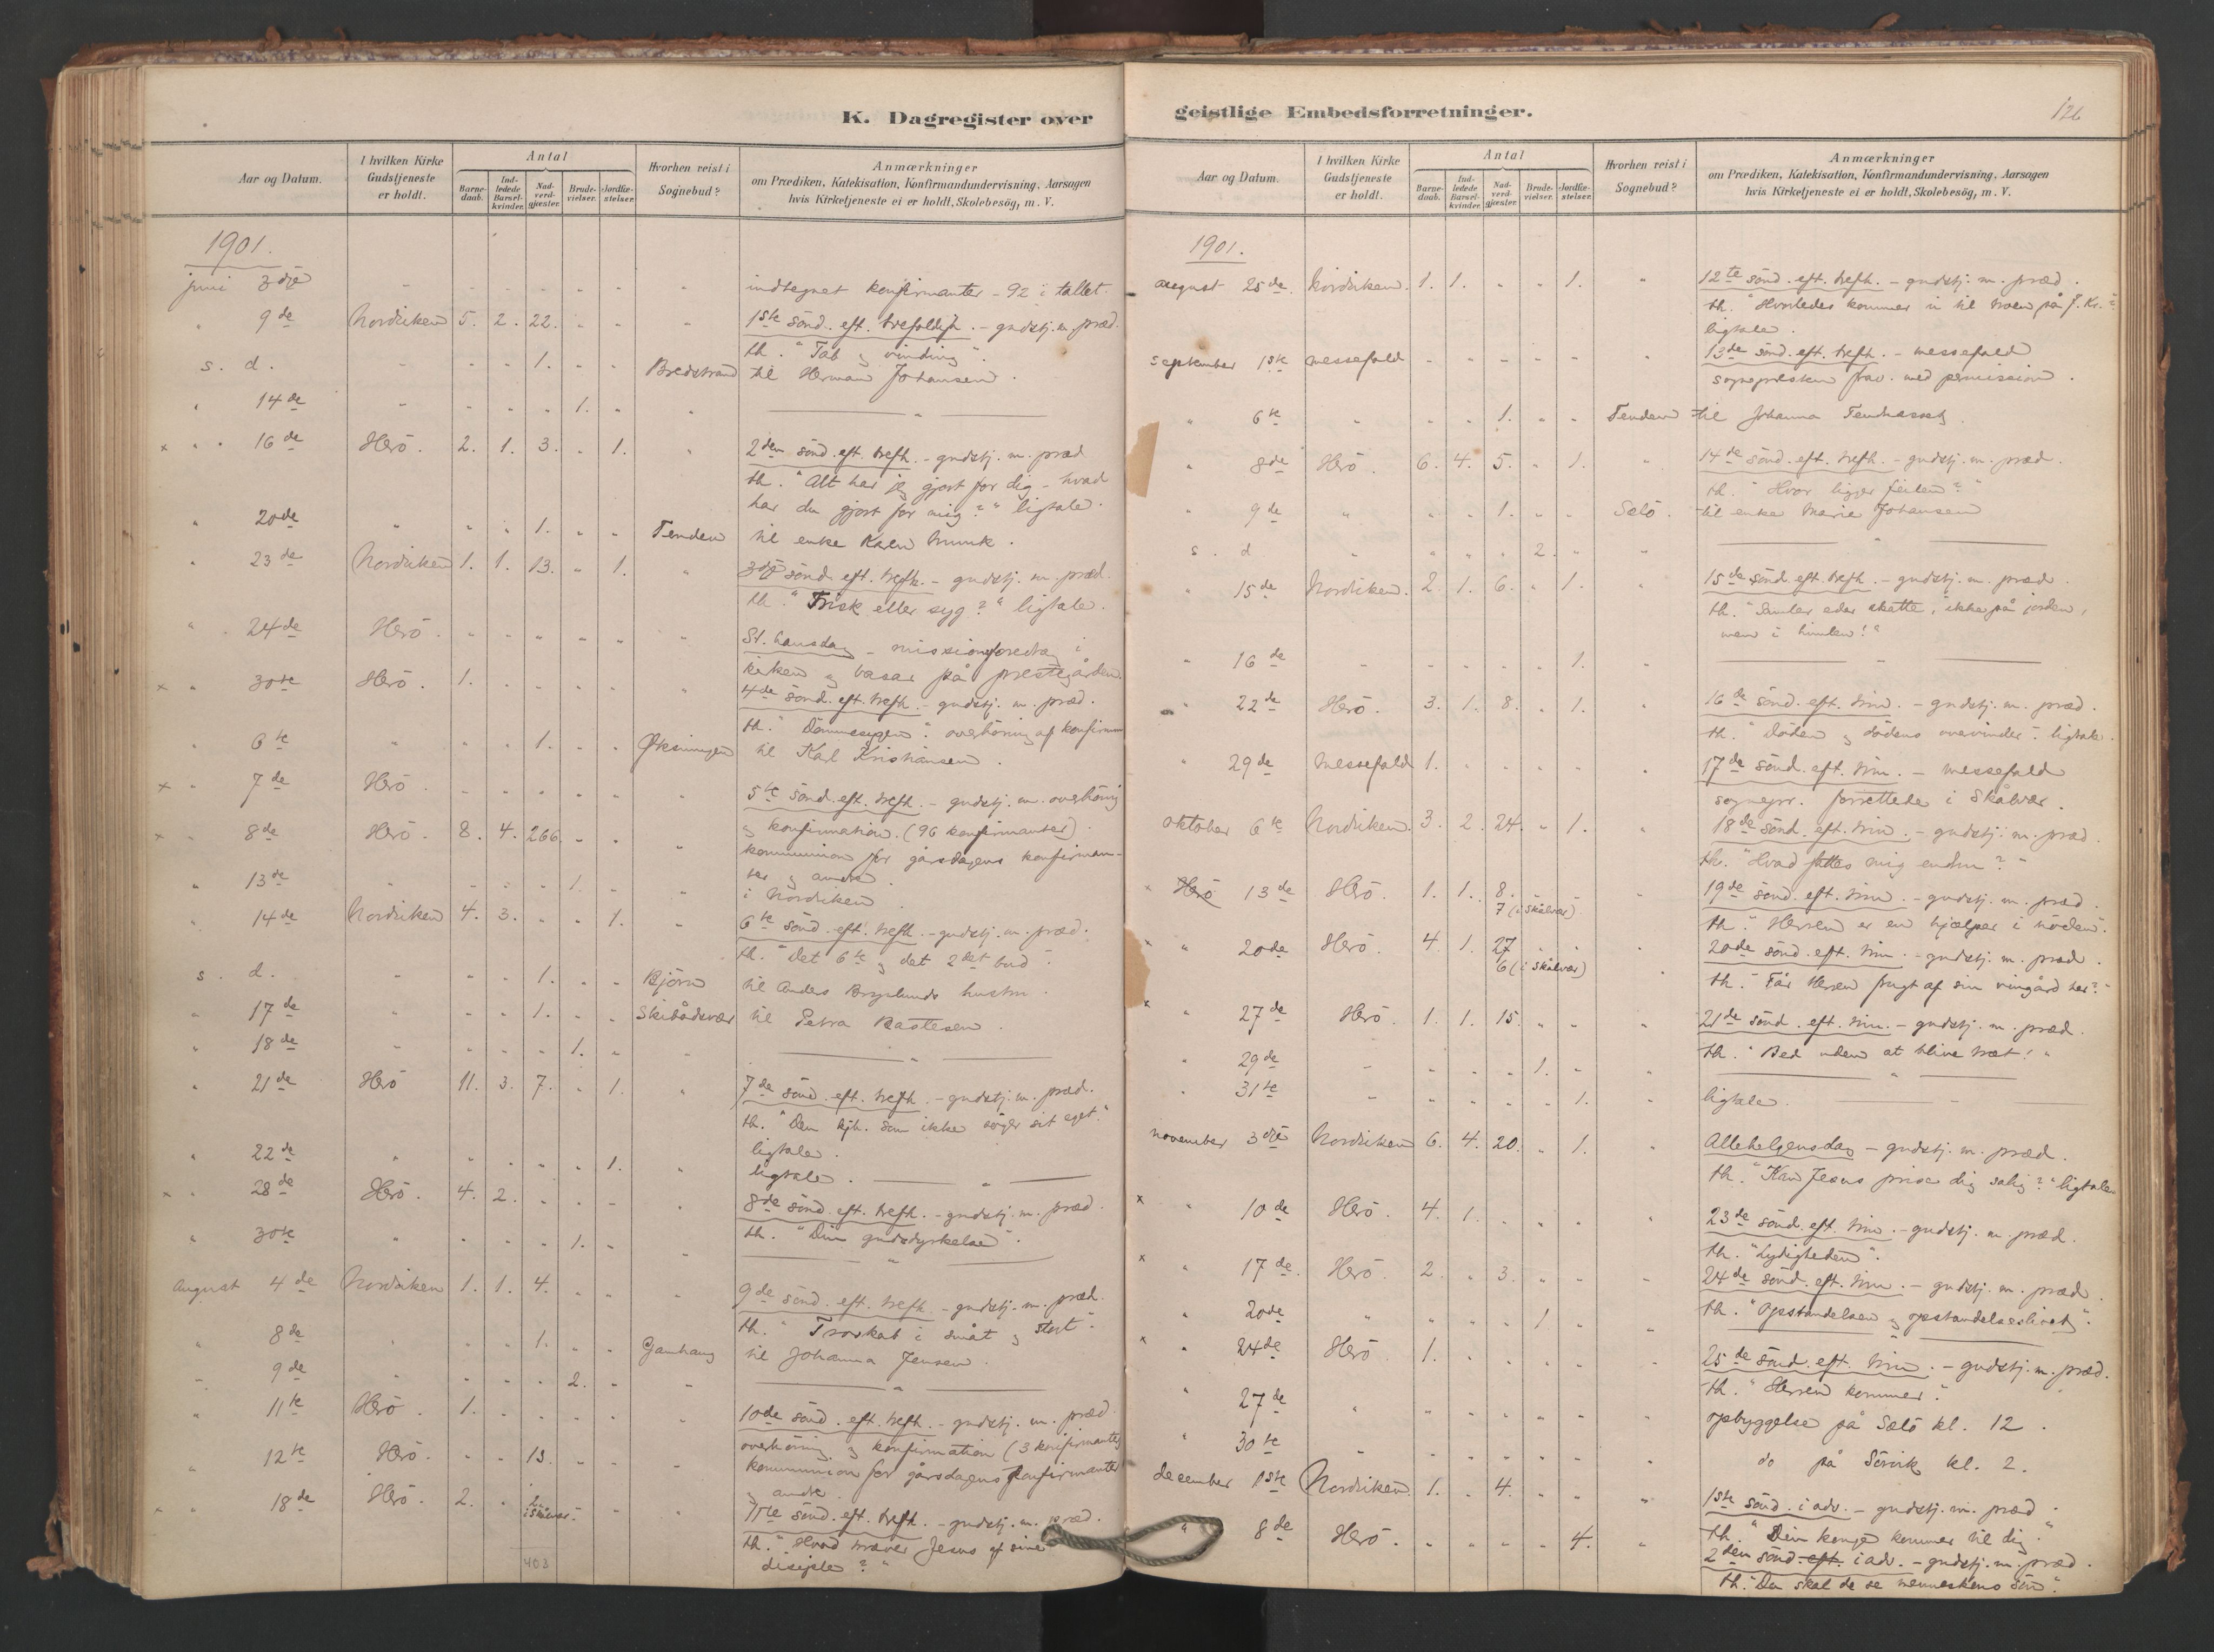 K. Dagregister over
Aar og Datum.
I hvilken Kirke Gudstjeneste er holdt.
Antal
Barnedaab.
Indledede Barselkvinder.
Nadverdgjæster.
Brudevielser.
Jordfæstelser.
Hvorhen reist i Sognebud?
Anmærkninger
om Prædiken, Katekisation, Konfirmandundervisning, Aarsagen
hvis Kirketjeneste ei er holdt, Skolebesög, m. V.
1901.
juni 3dje " " " " " " indtegnet konfirmanter - 92 i tallet.
" 9de Nordviken 5. 2. 22. " " " 1ste sönd. eft. trefoldigh. - gudstj. m. præd.
th. "Tab og vinding".
s. d. " " " 1. " " Bredstrand til Herman Johansen.
" 14de " " " " 1. " "
x " 16de Herö. 2. 1. 3. " 1. " 2den sönd. eft. trefh. - gudstj. m. præd
th. "Alt har jeg gjort for dig - hvad
har du gjort for mig?" ligtale.
" 20de " " " 1. " " Tenden til enke Karen Munk.
" 23de Nordviken 1. 1. 13. " 1. " 3dje sönd. eft. trefh. - gudstj. m. præd.
th. "Frisk eller syg?" ligtale.
" 24de Herö. " " " " " " St. hansdag - missionsforedrag i
kirken og basar på prestegården.
x " 30te Herö. 1. " " " " " 4de sönd. eft. trefh. - gudstj. m. præd.
th. "Dömmesygen". overhöring af konfirm
" 6te " " " 1. " " Öksningen til Karl Kristiansen.
x " 7de Herö. " " " " " " 5te sönd. eft. trefh. - gudstj. m. overhöring
og konfirmation. (96 konfirmanter).
x " 8de Herö. 8. 4. 266. " " " kommunion for gårsdagens konfirman-
ter og andre.
" 13de " " " " 1. " " i Nordviken.
" 14de Nordviken 4. 3. " " 1. " 6te sönd. eft. trefh. - gudstj. m. præd.
th. "Det 6te og det 2det bud".
s. d. " " " 1. " " Björn til Anders Bryslunds hustru.
" 17de " " " 1. " " Skibådsvær til Petra Bastesen.
" 18de " " " " 1. " "
" 21de Herö 11. 3. 7. " 1. " 7de sönd. eft. trefh. - gudstj. m. præd.
th. "Den kjh. som ikke söger sit eget."
ligtale.
" 22de " " " " " 1. " ligtale.
x " 28de Herö. 4. 2. " " " " 8de sönd. eft. trefh. - gudstj. m. præd.
th. "Din gudsdyrkelse".
" 30te " " " " 1. " "
August 4de Nordviken 1. 1. 4. " " " 9de sönd. eft. trefh. - gudstj. m. præd.
th. "Troskab i småt og stort".
" 8de " " " 1. " " til Johanna Jensen.
" 9de " " " " 2. " "
" 11te Herö. 1. " " " " " 10de sönd. eft. trefh. - gudstj. m. præd.
overhöring og konfirmation (3 konfirmanter)
" 12te Herö. " " 13. " " " kommunion for gårsdagens konfirmanter
og andre.
x " 18de Herö. 2. " i Skålvær. " " " 11te sönd. eft. trefh. - gudstj. m. præd.
th. "Hvad kræver Jesus af sine
disciple?"
403
geistlige Embedsforretninger.
126
Aar og Datum.
I hvilken Kirke Gudstjeneste er holdt.
Antal
Barnedaab.
Indledede Barselkvinder.
Nadverdgjæster.
Brudevielser.
Jordfæstelser.
Hvorhen reist i Sognebud?
Anmærkninger
om Prædiken, Katekisation, Konfirmandundervisning, Aarsagen
hvis Kirketjeneste ei er holdt, Skolebesög, m. V.
1901.
august 25de Nordviken. 1. 1. " " 1. " 12te sönd. eft. trefh. - gudstj. m. præd.
th. "Hvorledes kommer vi til troen på J. Kr.?"
ligtale.
september 1ste messefald " " " " " " 13de sönd. eft. trefh. - messefald
sognepresten frav. med permission.
" 6te " " " 1. " " Tenden til Johanna
" 8de Herö. 6. 4. 5. " 1. " 14de sönd. eft. trefh. - gudstj. m. præd.
th. "Hvor ligger feilen?"
" 9de " " " 1. " " Sælö. til enke Marie Johansen
s. d " " " " 2. " "
" 15de Nordviken. 2. 1. 6. " 1. " 15de sönd. eft. trefh. - gudstj. m. præd.
th. "Samler eder skatte, ikke på jorden,
men i himlen!"
" 16de " " " " " 1. "
" 22de Herö. 3. 1. 8. " 1. " 16de sönd. eft. trin. - gudstj. m. præd.
th. "Döden og dödens overvinder". ligtale.
" 29de messefald 1. " " " " " 17de sönd. eft. trin. - messefald
sognepr. forrettede i Skålvær.
oktober 6te Nordviken. 3. 2. 24. " 1. " 18de sönd. eft. trin. - gudstj. m. præd.
th. "Hvad fattes mig endnu?"
x Herö 13de Herö. 1. 1. 8. " " " 19de sönd. eft. trin. - gudstj. m. præd.
7 (i Skålvær)
th. "Herren er en hjælper i nöden".
x " 20de Herö. 4. 1. 27 " " " 20de sönd. eft. trin. - gudstj. m. præd.
6 (i Skålvær)
th. "Får Herren frugt af sin vingård her?"
x " 27de Herö. 1. 1. 15. " " " 21de sönd. eft. trin. - gudstj. m. præd.
th. "Bed uden at blive træt!"
" 29de " " " " 1. " "
" 31te " " " " " 1. " ligtale.
november 3dje Nordviken 6. 4. 20. " 1. " Allehelgensdag - gudstj. m. præd.
th. "Kan Jesus prise dig salig?" ligtale.
x " 10de Herö. 4. 1. " " " " 23de sönd. eft. trin. - gudstj. m. præd.
th. "Lydigheden".
x " 17de. Herö. 2. " 3. " " " 24de sönd. eft. trin. - gudstj. m. præd.
th. "Opstandelsen og opstandelseslivet".
" 20de " " " " 1 " "
x " 24de Herö. 1. " " " " " 25de sönd. eft. trin. - gudstj. m. præd.
th. "Herren kommer".
" 27de " " " " " " " opbyggelse på Sælö kl. 12.
" 30te " " " " " " " do på Sörvik kl. 2.
december 1ste Nordviken. 1. " 4. " " " 1ste sönd. i adv. - gudstj. m. præd.
th. "Din konge kommer til dig".
" 8de Herö. " " " " 4. " 2den sönd. eft. i adv. - gudstj. m. præd.
th. "Da skal de se menneskens sön".